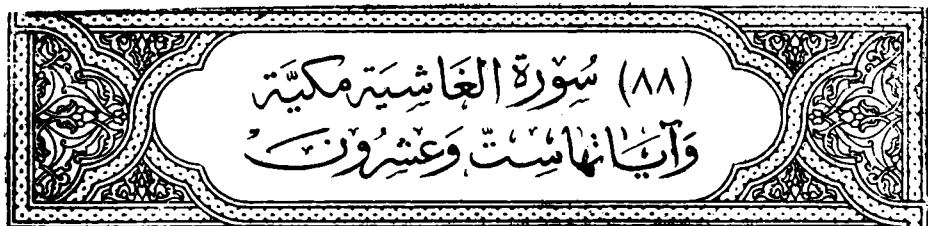 (٨٨) سُورَةُ الغَاشِيَةِ مكيَّة
وَآيَاتهَا سِتٌّ وَعَشِرُونَ